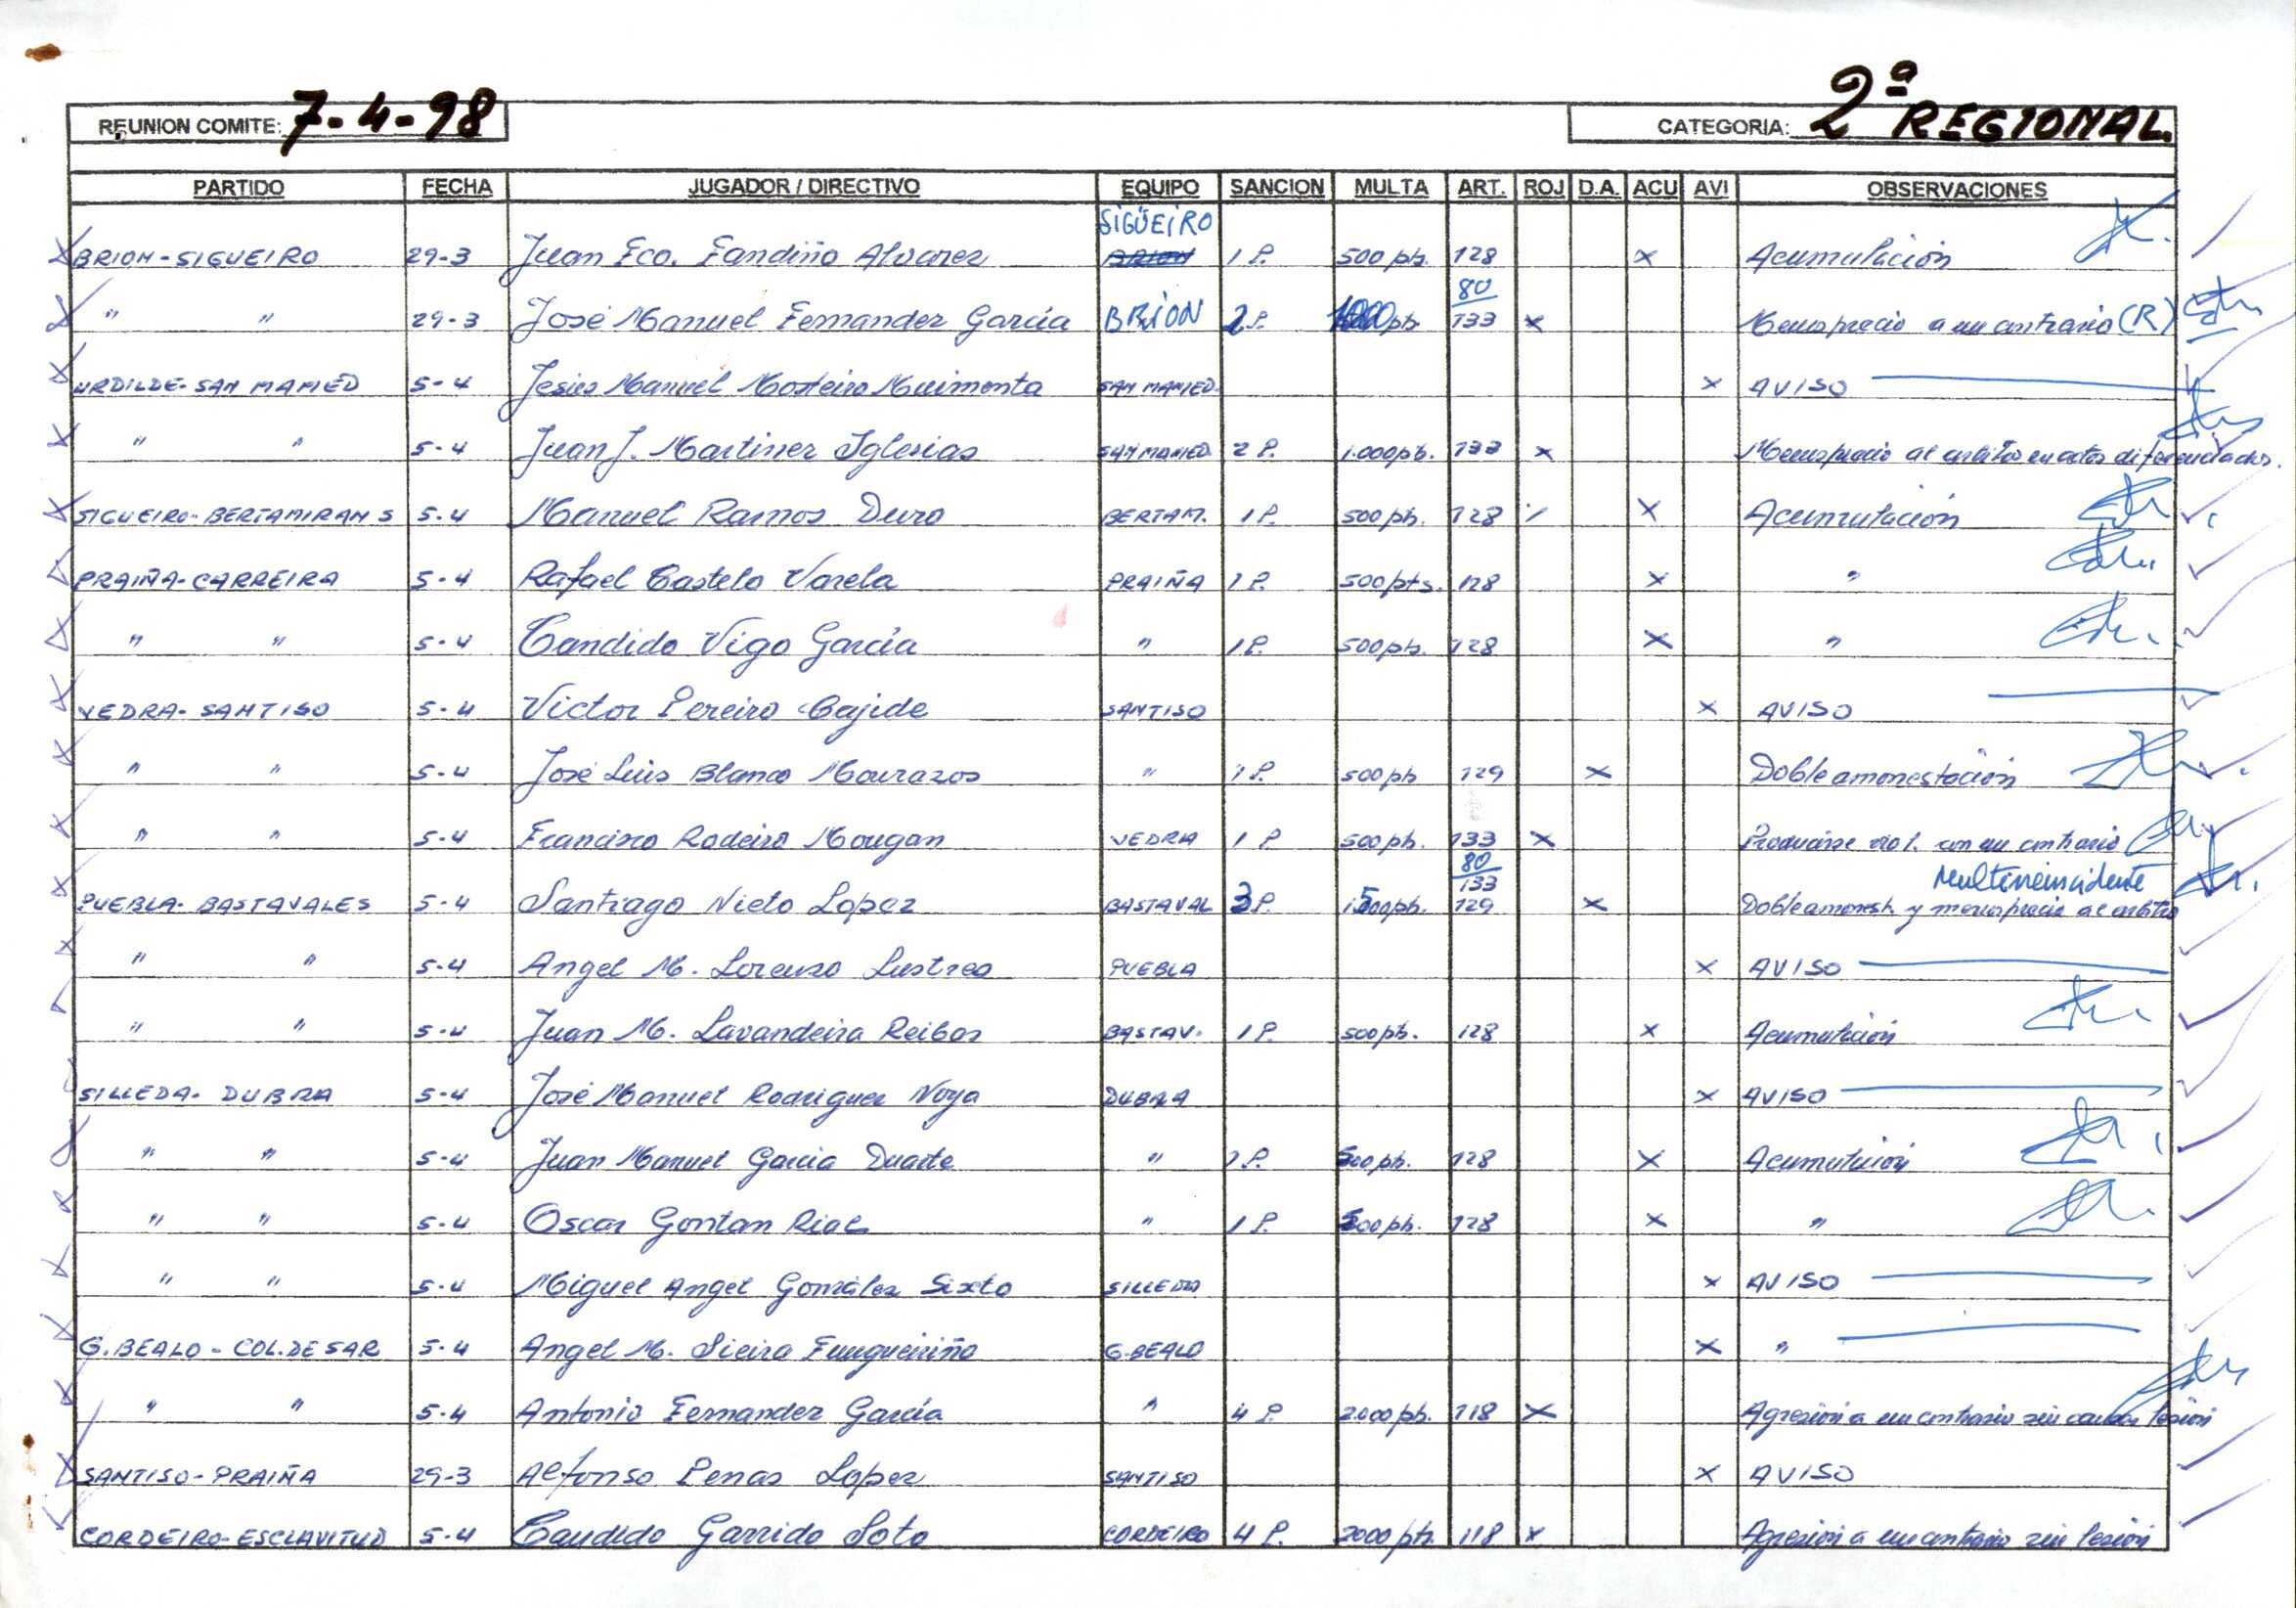 REUNION COMITE: 7-4-98
CATEGORIA: 2ª REGIONAL.
PARTIDO FECHA JUGADOR / DIRECTIVO EQUIPO SANCION MULTA ART. ROJ D.A. ACU AVI OBSERVACIONES
SIGÜEIRO
BRION-SIGUEIRO 29-3 Juan Fco. Fandiño Alvarez BRION 1 P. 500 pts. 128 x Acumulación
80
" " 29-3 José Manuel Fernandez García BRION 2 P. 1000 pts 133 x Menosprecio a un contrario (R)
URDILDE-SAN MAMED 5-4 Jesús Manuel Mosteiro Muimenta SAN MAMED x AVISO
" " 5-4 Juan J. Martinez Iglesias SAN MAMED 2 P. 1.000 pts. 133 x Menosprecio al arbitro en actos diferenciados.
SIGUEIRO-BERTAMIRANS 5-4 Manuel Ramos Duro BERTAM. 1 P. 500 pts. 128 x Acumulación
PRAIÑA-CARREIRA 5-4 Rafael Castelo Varela PRAIÑA 1 P. 500 pts. 128 x "
" " 5-4 Candido Vigo García " 1 P. 500 pts. 128 x "
VEDRA-SANTISO 5-4 Victor Pereiro Cajide SANTISO x AVISO
" " 5-4 José Luis Blanco Mourazos " 1 P. 500 pts 129 x Doble amonestación
" " 5-4 Francisco Rodeiro Mougan VEDRA 1 P. 500 pts. 133 x Producirse viol. con un contrario
80
133 Multirreincidente
PUEBLA-BASTAVALES 5-4 Santiago Nieto Lopez BASTAVAL 3 P. 1500 pts. 129 x Doble amonest. y menosprecio al arbitro
" " 5-4 Angel M. Lorenzo Lustres PUEBLA x AVISO
" " 5-4 Juan M. Lavandeira Reibos BASTAV. 1 P. 500 pts. 128 x Acumulación
SILLEDA-DUBRA 5-4 José Manuel Rodriguez Noya DUBRA x AVISO
" " 5-4 Juan Manuel Garcia Duarte " 1 P. 500 pts. 128 x Acumulación
" " 5-4 Oscar Gontan Rial " 1 P. 500 pts. 128 x "
" " 5-4 Miguel Angel González Sixto SILLEDA x AVISO
G.BEALO-COL.DE SAR 5-4 Angel M. Sieira Fungueiriño G.BEALO x "
" " 5-4 Antonio Fernandez García " 4 P. 2.000 pts. 118 x Agresión a un contrario sin causar lesión
SANTISO-PRAIÑA 29-3 Alfonso Penas Lopez SANTISO x AVISO
CORDEIRO-ESCLAVITUD 5-4 Candido Garrido Soto CORDEIRO 4 P. 2000 pts. 118 x Agresión a un contrario sin lesión